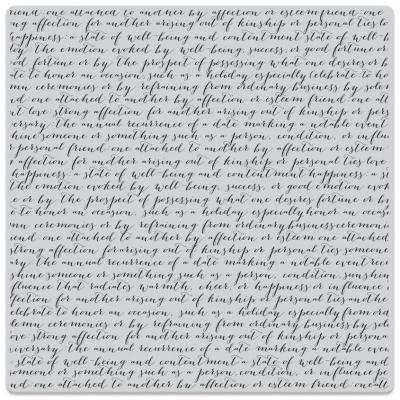 riend one attached to another by affection or esteem friend one
ng affection for another arising out of kinship or personal ties lo
happiness a state of well-being and contentment state of well-b
joy the emotion evoked by well-being, success, or good fortune or
od fortune or by the prospect of possessing what one desires or b
ate to honor an occasion, such as a holiday especially celebrate to ho
mn ceremonies or by refraining from ordinary business by solem
nd one attached to another by affection or esteem friend one att
nt love strong affection for another arising out of kinship or pers
versary the annual recurrence of a date marking a notable event
shine someone or something such as a person, condition, or influ
r personal friend one attached to another by affection or esteem
g affection for another arising out of kinship or personal ties love
happiness a state of well-being and contentment happiness a st
the emotion evoked by well-being, success, or good emotion evok
e or by the prospect of possessing what one desires fortune or by
e to honor an occasion, such as a holiday especially honor an occasi
mn ceremonies or by refraining from ordinary business ceremonies
iend one attached to another by affection or esteem one attached
strong affection for arising out of kinship or personal ties someone
y the annual recurrence of a date marking a notable event recu
shine someone or something such as a person, condition, sunshin
fluence that radiates warmth, cheer, or happiness or influence
ffection for another arising out of kinship or personal ties another
celebrate to honor an occasion, such as a holiday especially from ord
lemn ceremonies or by refraining from ordinary business by sole
ove strong affection for another arising out of kinship or persona
iversary the annual recurrence of a date marking a notable even
state of well-being and contentment a state of well-being and
omeone or something such as a person, condition, or influence pe
nd one attached to another by affection or esteem friend one att